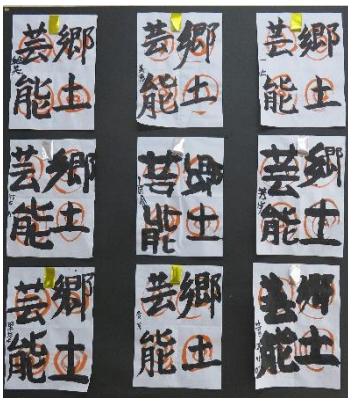 郷土
芸能
郷土
芸能
郷土
芸能
郷土
芸能
郷土
芸能
郷土
芸能
郷土
芸能
郷土
芸能
郷土
芸能